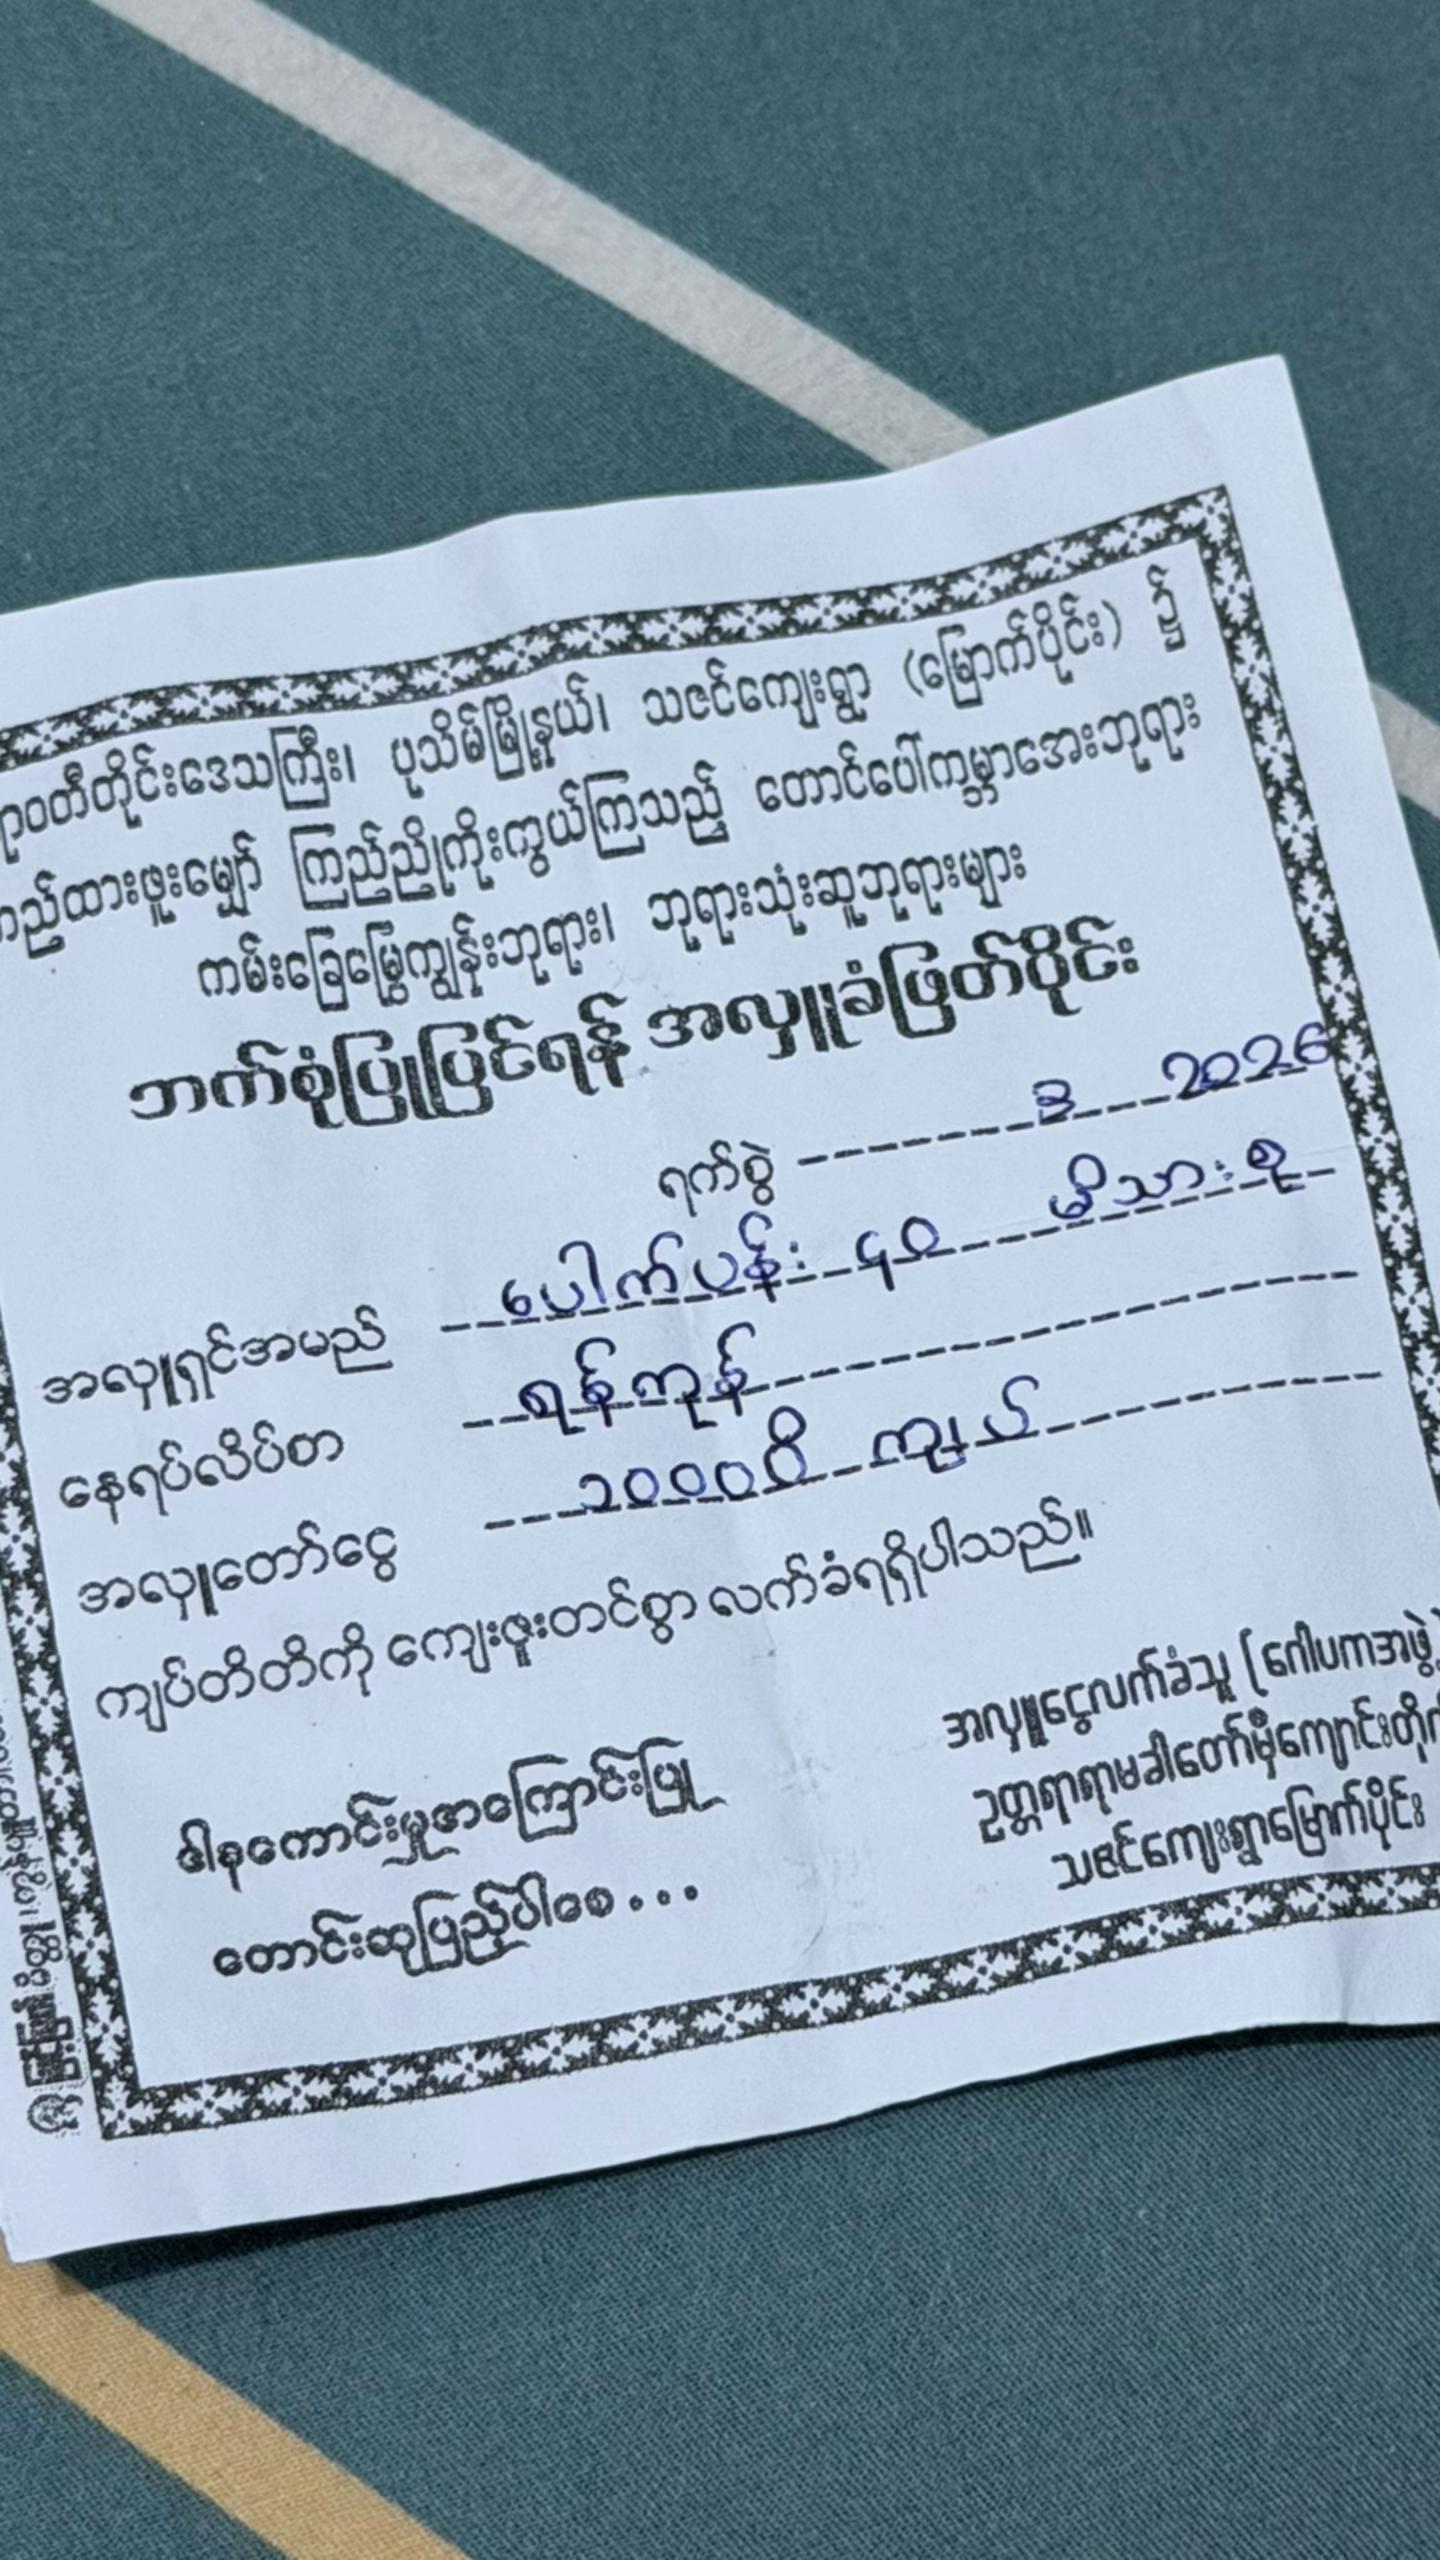 ရာဝတီတိုင်းဒေသကြီး၊ ပုသိမ်မြို့နယ်၊ သဇင်ကျေးရွာ (မြောက်ပိုင်း) ၌
တည်ထားဖူးမျှော် ကြည်ညိုကိုးကွယ်ကြသည့် တောင်ပေါ်ကမ္ဘာအေးဘုရား
ကမ်းခြေမြွေကျွန်းဘုရား၊ ဘုရားသုံးဆူဘုရားများ
ဘက်စုံပြုပြင်ရန် အလှူခံဖြတ်ပိုင်း
ရက်စွဲ 3 2026
အလှူရှင်အမည် ပေါက်ပန်း ၄၀ မိသားစု
နေရပ်လိပ်စာ ရန်ကုန်
အလှူတော်ငွေ ၁၀၀၀၀ိ ကျပ်
ကျပ်တိတိကို ကျေးဇူးတင်စွာ လက်ခံရရှိပါသည်။
ဒါနကောင်းမှုအကြောင်းပြု
တောင်းဆုပြည့်ပါစေ...
အလှူငွေလက်ခံသူ (ဂေါပကအဖွဲ့)
ဥတ္တရာရာမခါတော်မှီကျောင်းတိုက်
သဇင်ကျေးရွာမြောက်ပိုင်း